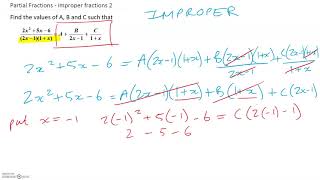 Partial Fractions - improper fractions 2
IMPROPER
Find the values of A, B and C such that
(2x² + 5x - 6)/((2x-1)(1+x)) = A + B/(2x-1) + C/(1+x)
2x² + 5x - 6 = A(2x-1)(1+x) + B(2x-1)(1+x)/(2x-1) + C(2x-1)
2x² + 5x - 6 = A(2x-1)(1+x) + B(1+x) + C(2x-1)
put x = -1 2(-1)² + 5(-1) - 6 = C(2(-1)-1)
2 - 5 - 6